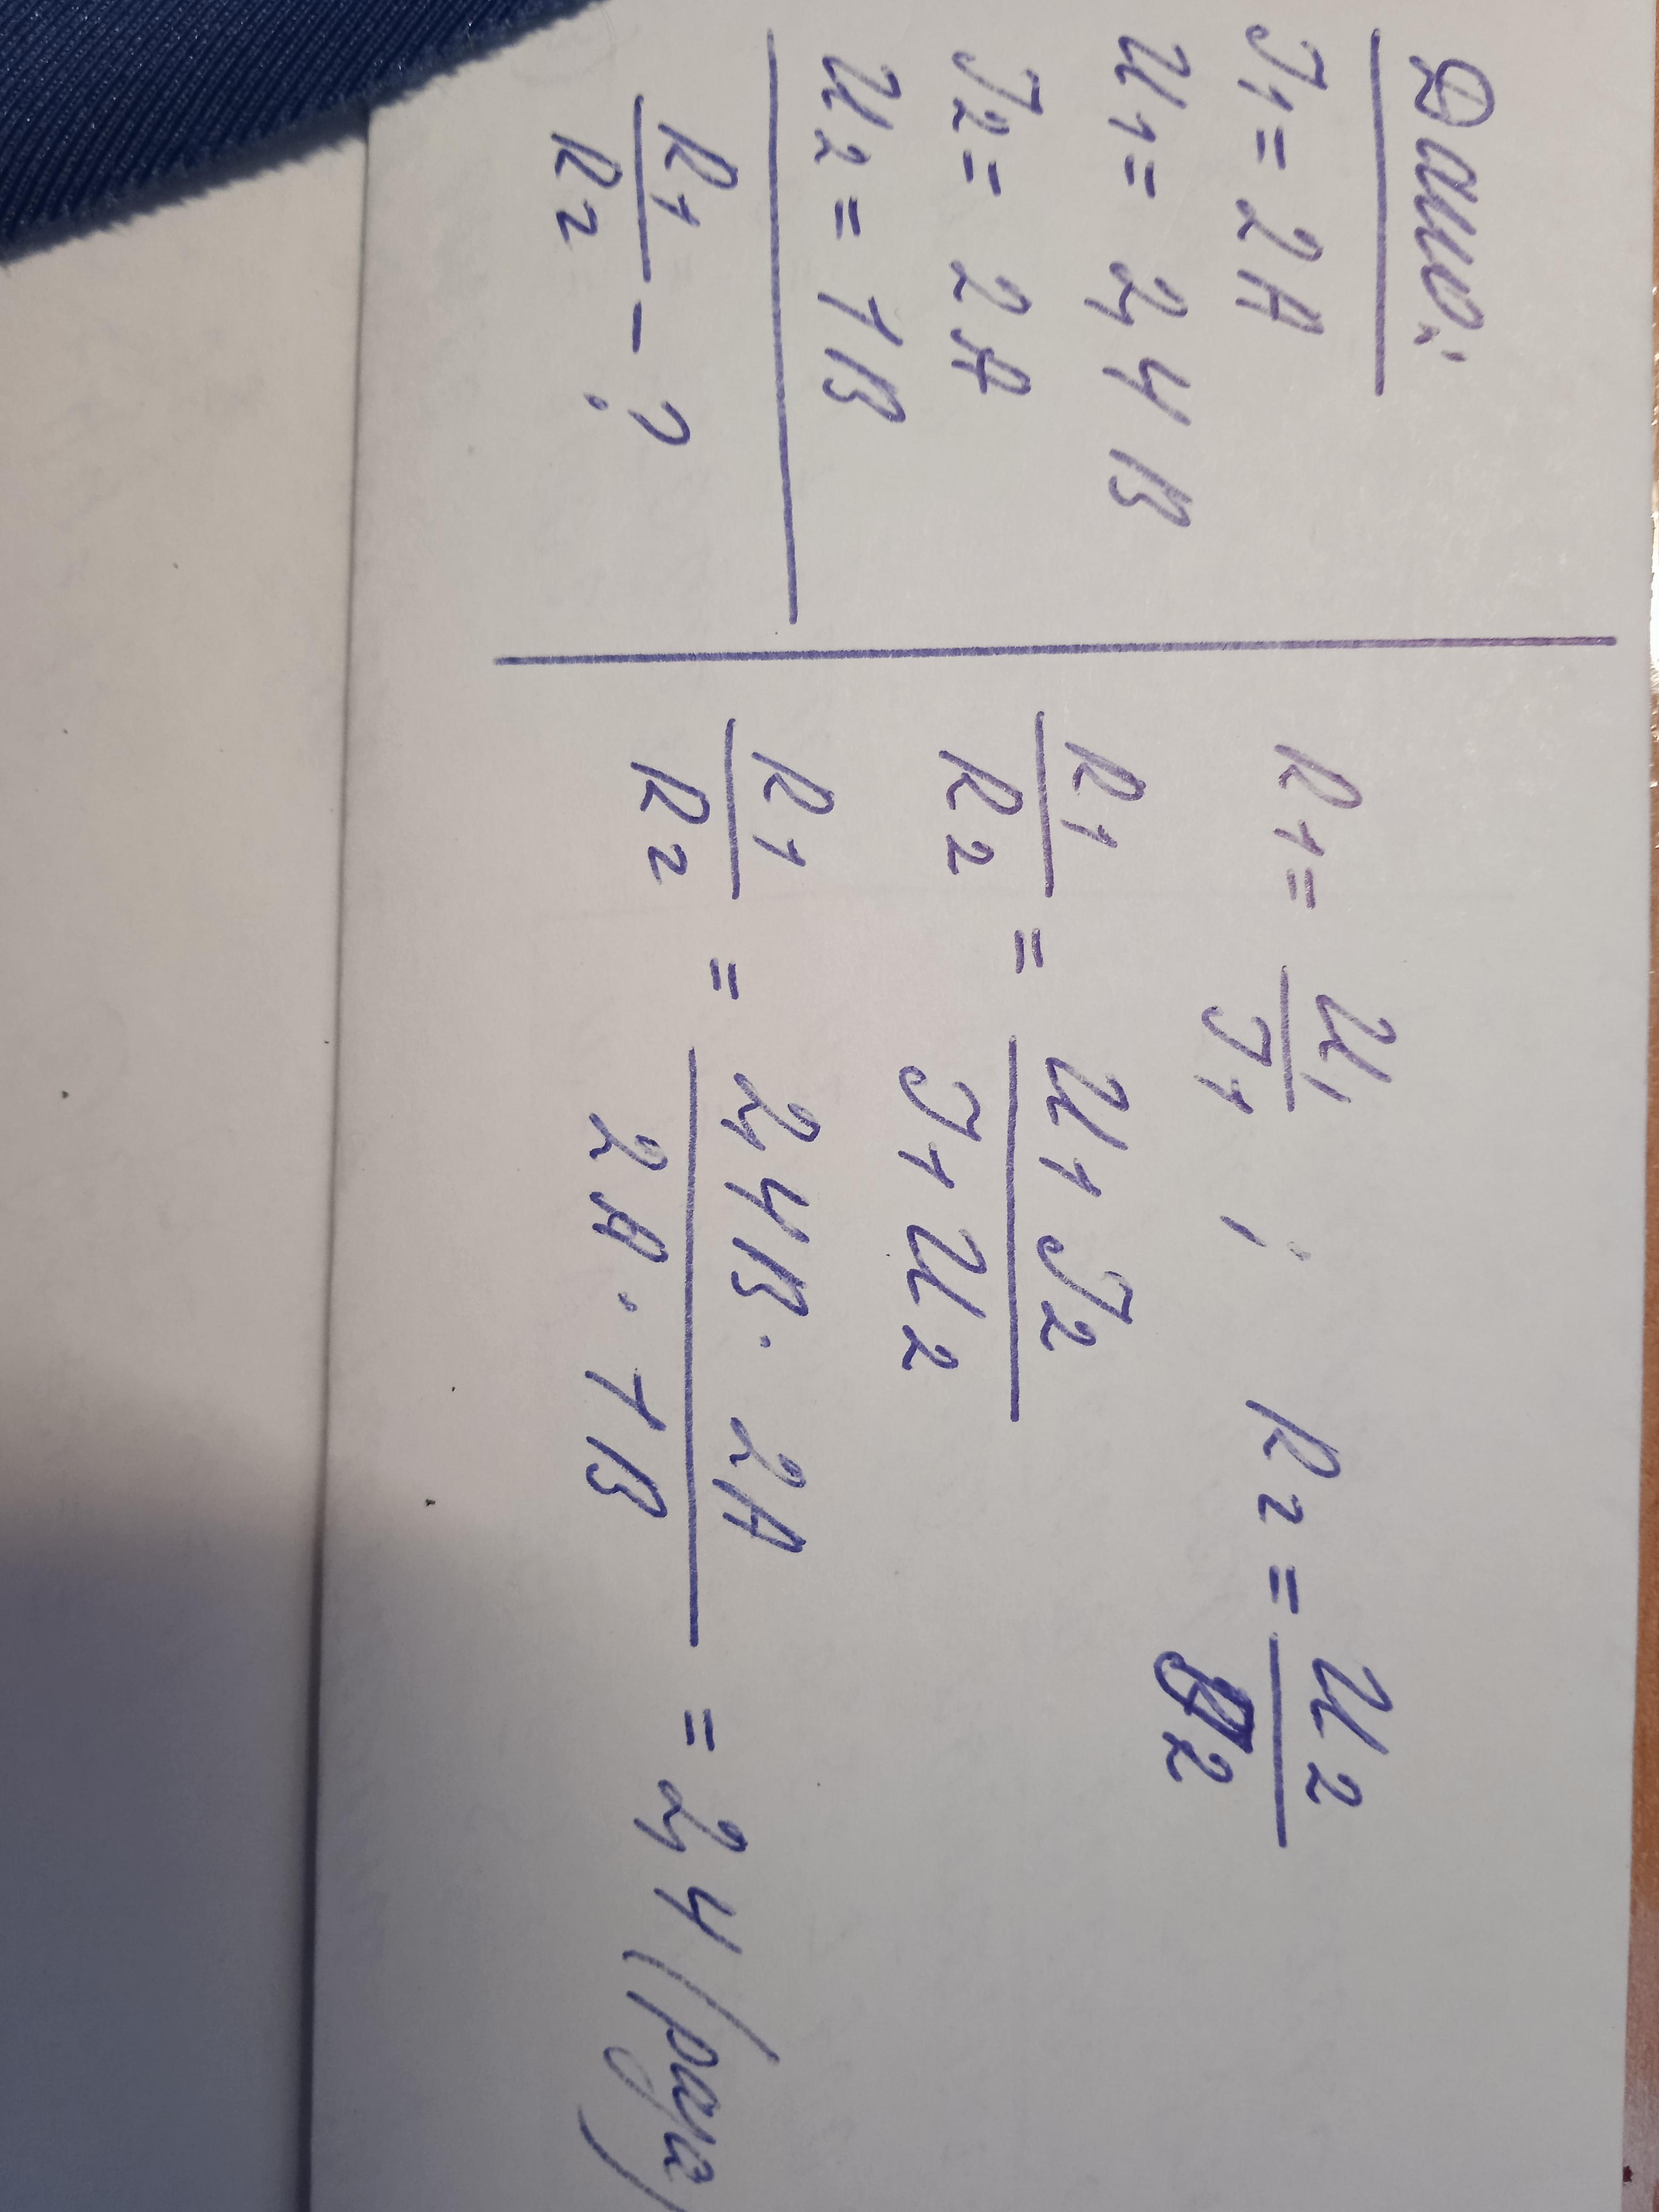 Дано:
I1 = 2А
U1 = 24 В
I2 = 2 А
U2 = 1В
R1/R2 - ?
R1 = U1/I1 ; R2 = U2/I2
R1/R2 = U1 I2/I1 U2
R1/R2 = 24В · 2А/2А · 1В = 24 (раза)